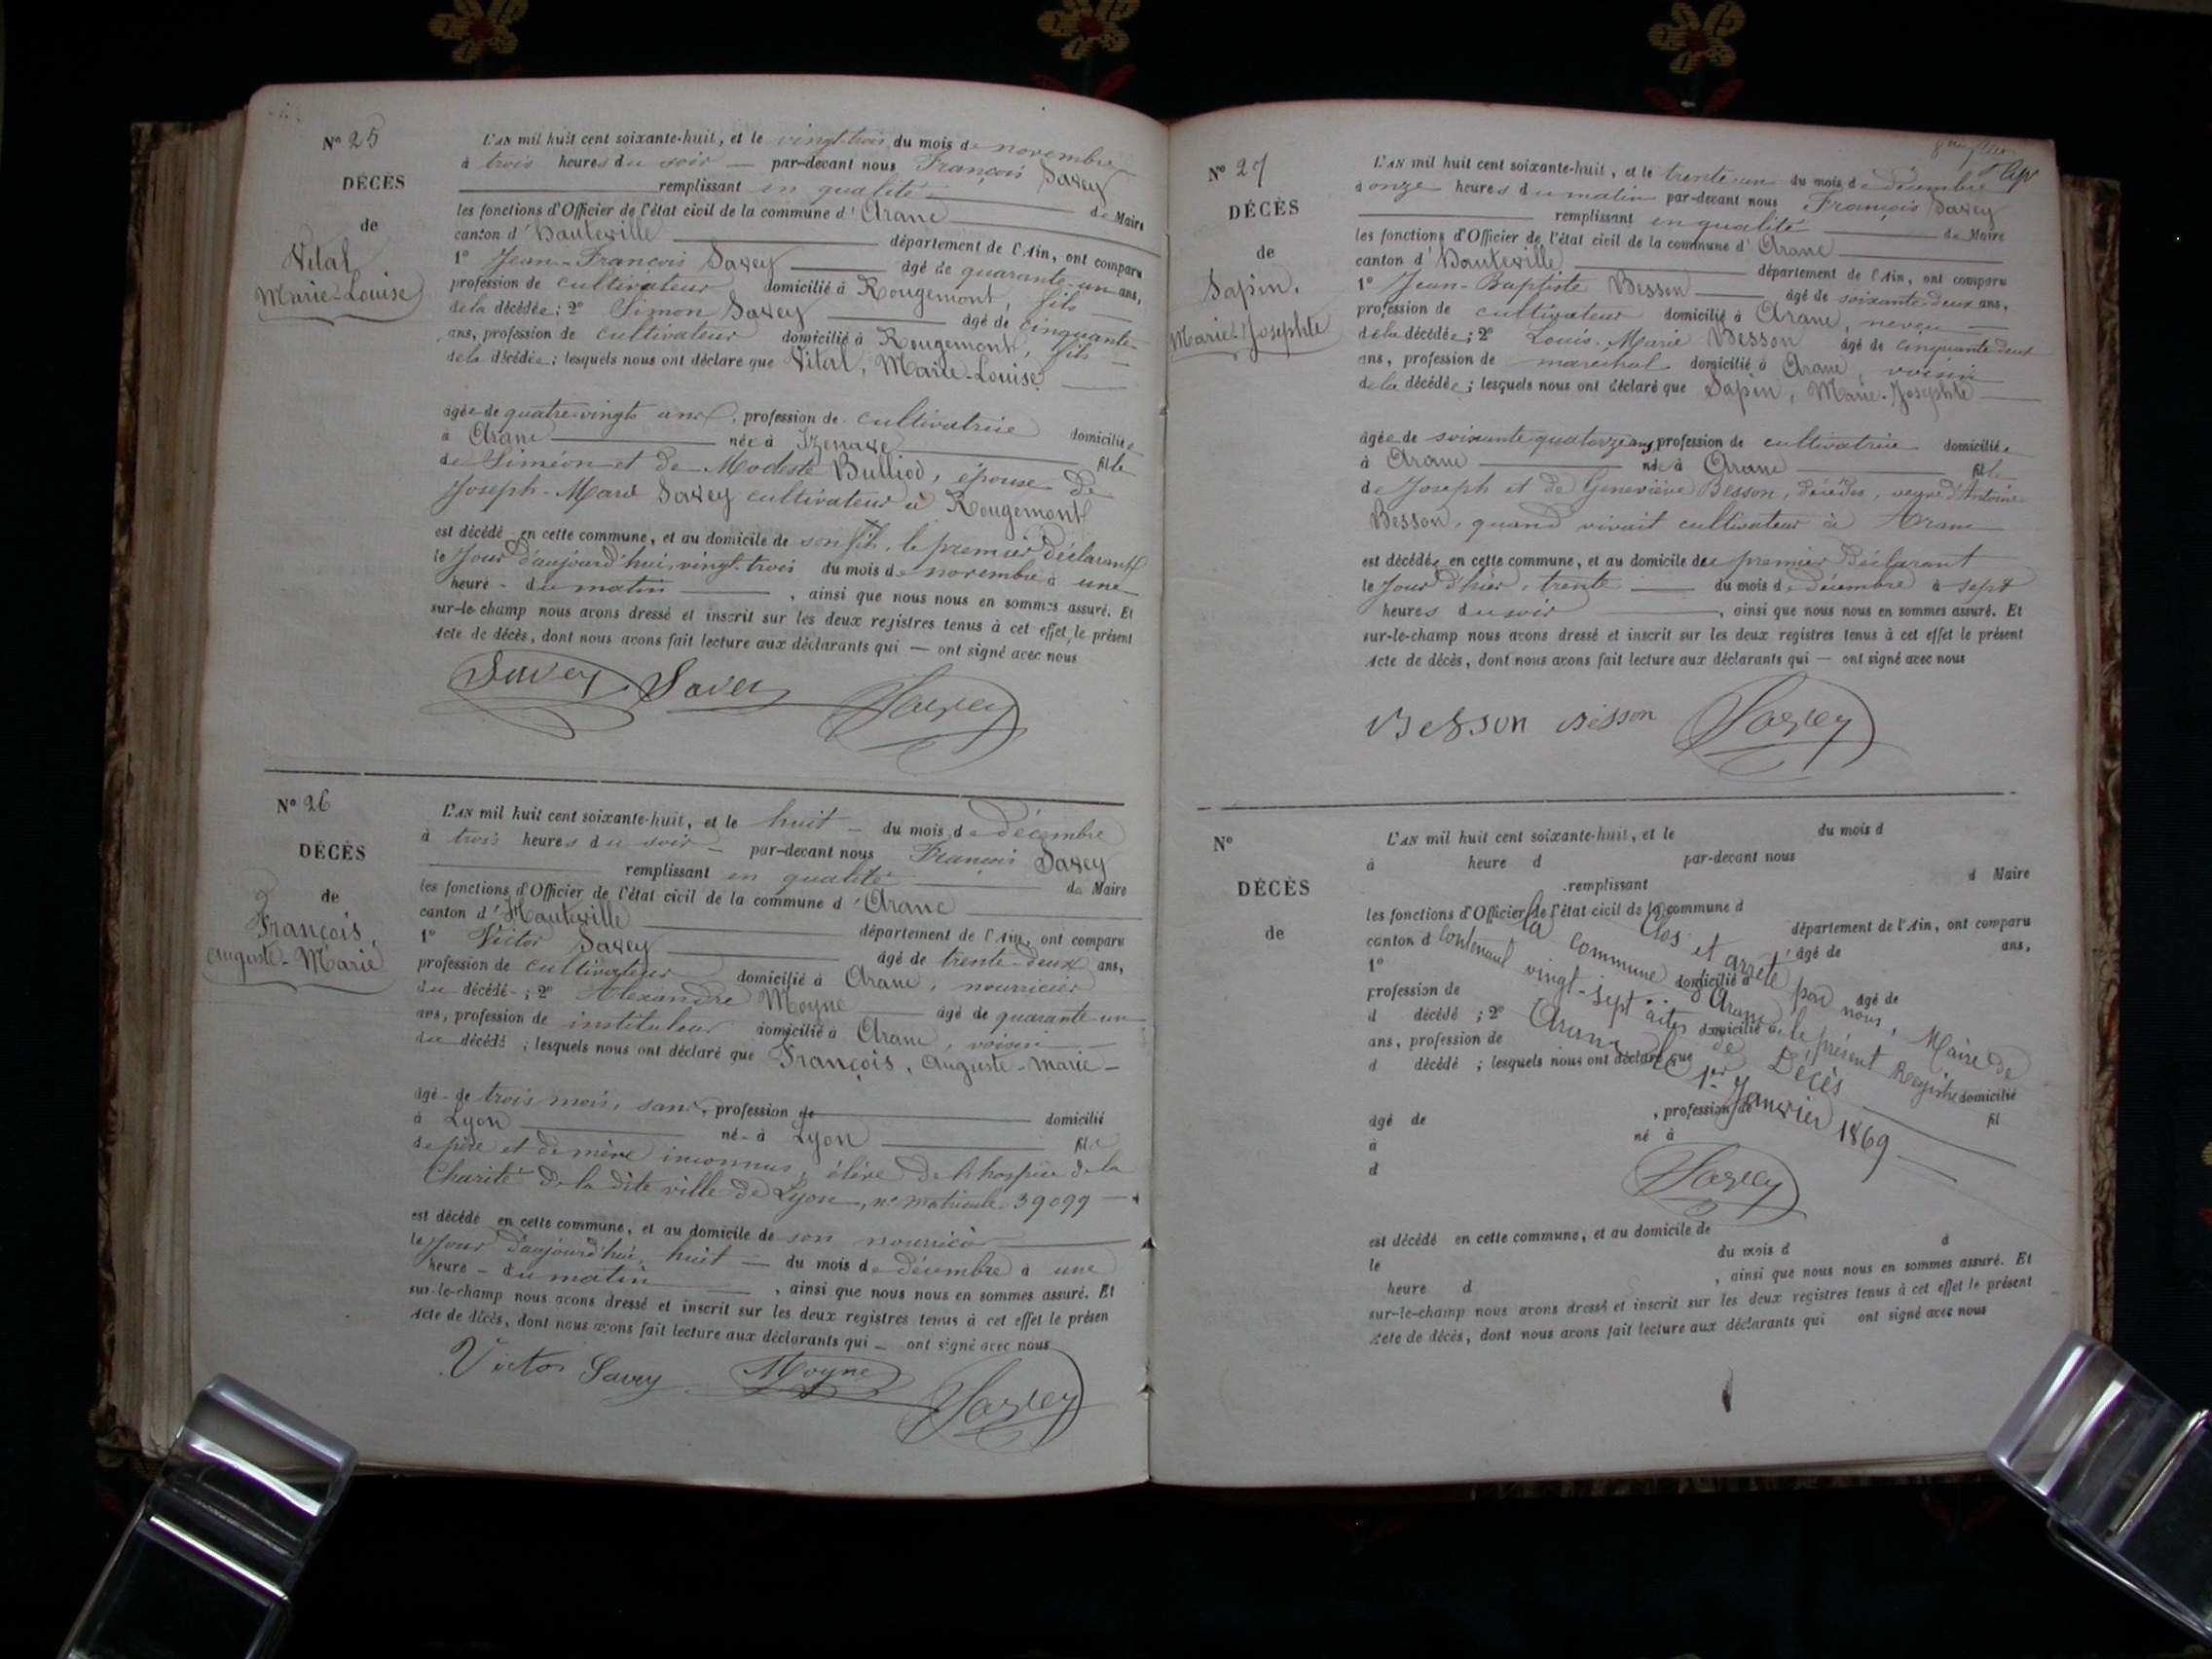 Nº 25
DÉCÈS
de
Vital
Marie-Louise
L'AN mil huit cent soixante-huit, et le vingt-trois du mois de novembre
à trois heures du soir — par-devant nous François Savey
remplissant en qualité de Maire
les fonctions d'Officier de l'état civil de la commune d'Aranc
canton d'Hauteville département de l'Ain, ont comparu
1º Jean-François Savey âgé de quarante-un ans,
profession de cultivateur domicilié à Rougemont, fils
de la décédée; 2º Simon Savey âgé de cinquante-
ans, profession de cultivateur domicilié à Rougemont, fils
de la décédée; lesquels nous ont déclaré que Vital, Marie-Louise
âgée de quatre-vingts ans, profession de cultivatrice domiciliée
à Aranc née à Izenave fille
de Siméon et de Modeste Bulliod, épouse de
Joseph-Marie Savey cultivateur à Rougemont
est décédé en cette commune, et au domicile de son fils, le premier déclarant
le Jour d'aujourd'hui, vingt-trois du mois de novembre à une
heure - du matin , ainsi que nous nous en sommes assuré. Et
sur-le-champ nous avons dressé et inscrit sur les deux registres tenus à cet effet le présent
Acte de décès, dont nous avons fait lecture aux déclarants qui — ont signé avec nous
Savey Savey Savey
Nº 26
DÉCÈS
de
François
Auguste-Marie
L'AN mil huit cent soixante-huit, et le huit - du mois de décembre
à trois heures du soir - par-devant nous François Savey
remplissant en qualité de Maire
les fonctions d'Officier de l'état civil de la commune d'Aranc
canton d'Hauteville département de l'Ain, ont comparu
1º Victor Savey âgé de trente-deux ans,
profession de cultivateur domicilié à Aranc, nourricier
du décédé -; 2º Alexandre Moyne âgé de quarante-un
ans, profession de instituteur domicilié à Aranc, voisin
du décédé ; lesquels nous ont déclaré que François, Auguste-Marie-
âgé - de trois mois, sans profession de domicilié
à Lyon né - à Lyon fils
de père et de mère inconnus, élève de l'hospice de la
Charité de la dite ville de Lyon, nº matricule 39099
est décédé en cette commune, et au domicile de son nourricier
le Jour d'aujourd'hui, huit — du mois de décembre à une
heure - du matin , ainsi que nous nous en sommes assuré. Et
sur-le-champ nous avons dressé et inscrit sur les deux registres tenus à cet effet le présen
Acte de décès, dont nous avons fait lecture aux déclarants qui - ont signé avec nous
Victor Savey Moyne Savey
Nº 27
DÉCÈS
de
Sapin,
Marie-Josephte
L'AN mil huit cent soixante-huit, et le trente-un du mois de décembre
à onze heures du matin par-devant nous François Savey
remplissant en qualité de Maire
les fonctions d'Officier de l'état civil de la commune d'Aranc
canton d'Hauteville département de l'Ain, ont comparu
1º Jean-Baptiste Besson âgé de soixante-deux ans,
profession de cultivateur domicilié à Aranc, neveu
de la décédée; 2º Louis-Marie Besson âgé de cinquante-deux
ans, profession de maréchal domicilié à Aranc, voisin
de la décédée; lesquels nous ont déclaré que Sapin, Marie-Josephte
âgée de soixante-quatorze ans, profession de cultivatrice domiciliée
à Aranc née à Aranc fille
de Joseph et de Geneviève Besson, décédés, veuve d'Antoine
Besson, quand vivait cultivateur à Aranc
est décédée en cette commune, et au domicile du premier déclarant
le Jour d'hier, trente — du mois de décembre à sept
heures du soir , ainsi que nous nous en sommes assuré. Et
sur-le-champ nous avons dressé et inscrit sur les deux registres tenus à cet effet le présent
Acte de décès, dont nous avons fait lecture aux déclarants qui — ont signé avec nous
Besson Besson Savey
Nº
DÉCÈS
de
L'AN mil huit cent soixante-huit, et le du mois d
à heure d par-devant nous
remplissant d Maire
les fonctions d'Officier de l'état civil de la commune d
canton d département de l'Ain, ont comparu
1º âgé de ans,
profession de domicilié à
d décédé ; 2º âgé de
ans, profession de domicilié à
d décédé ; lesquels nous ont déclaré que
Clos et arrêté par nous, Maire de
la commune d'Aranc, le présent Registre
contenant vingt-sept actes de Décès
Aranc le 1er Janvier 1869
Savey
domicilié
âgé de , profession de fil
à né à
d
est décédé en cette commune, et au domicile de
le du mois d à
heure d , ainsi que nous nous en sommes assuré. Et
sur-le-champ nous avons dressé et inscrit sur les deux registres tenus à cet effet le présent
Acte de décès, dont nous avons fait lecture aux déclarants qui ont signé avec nous